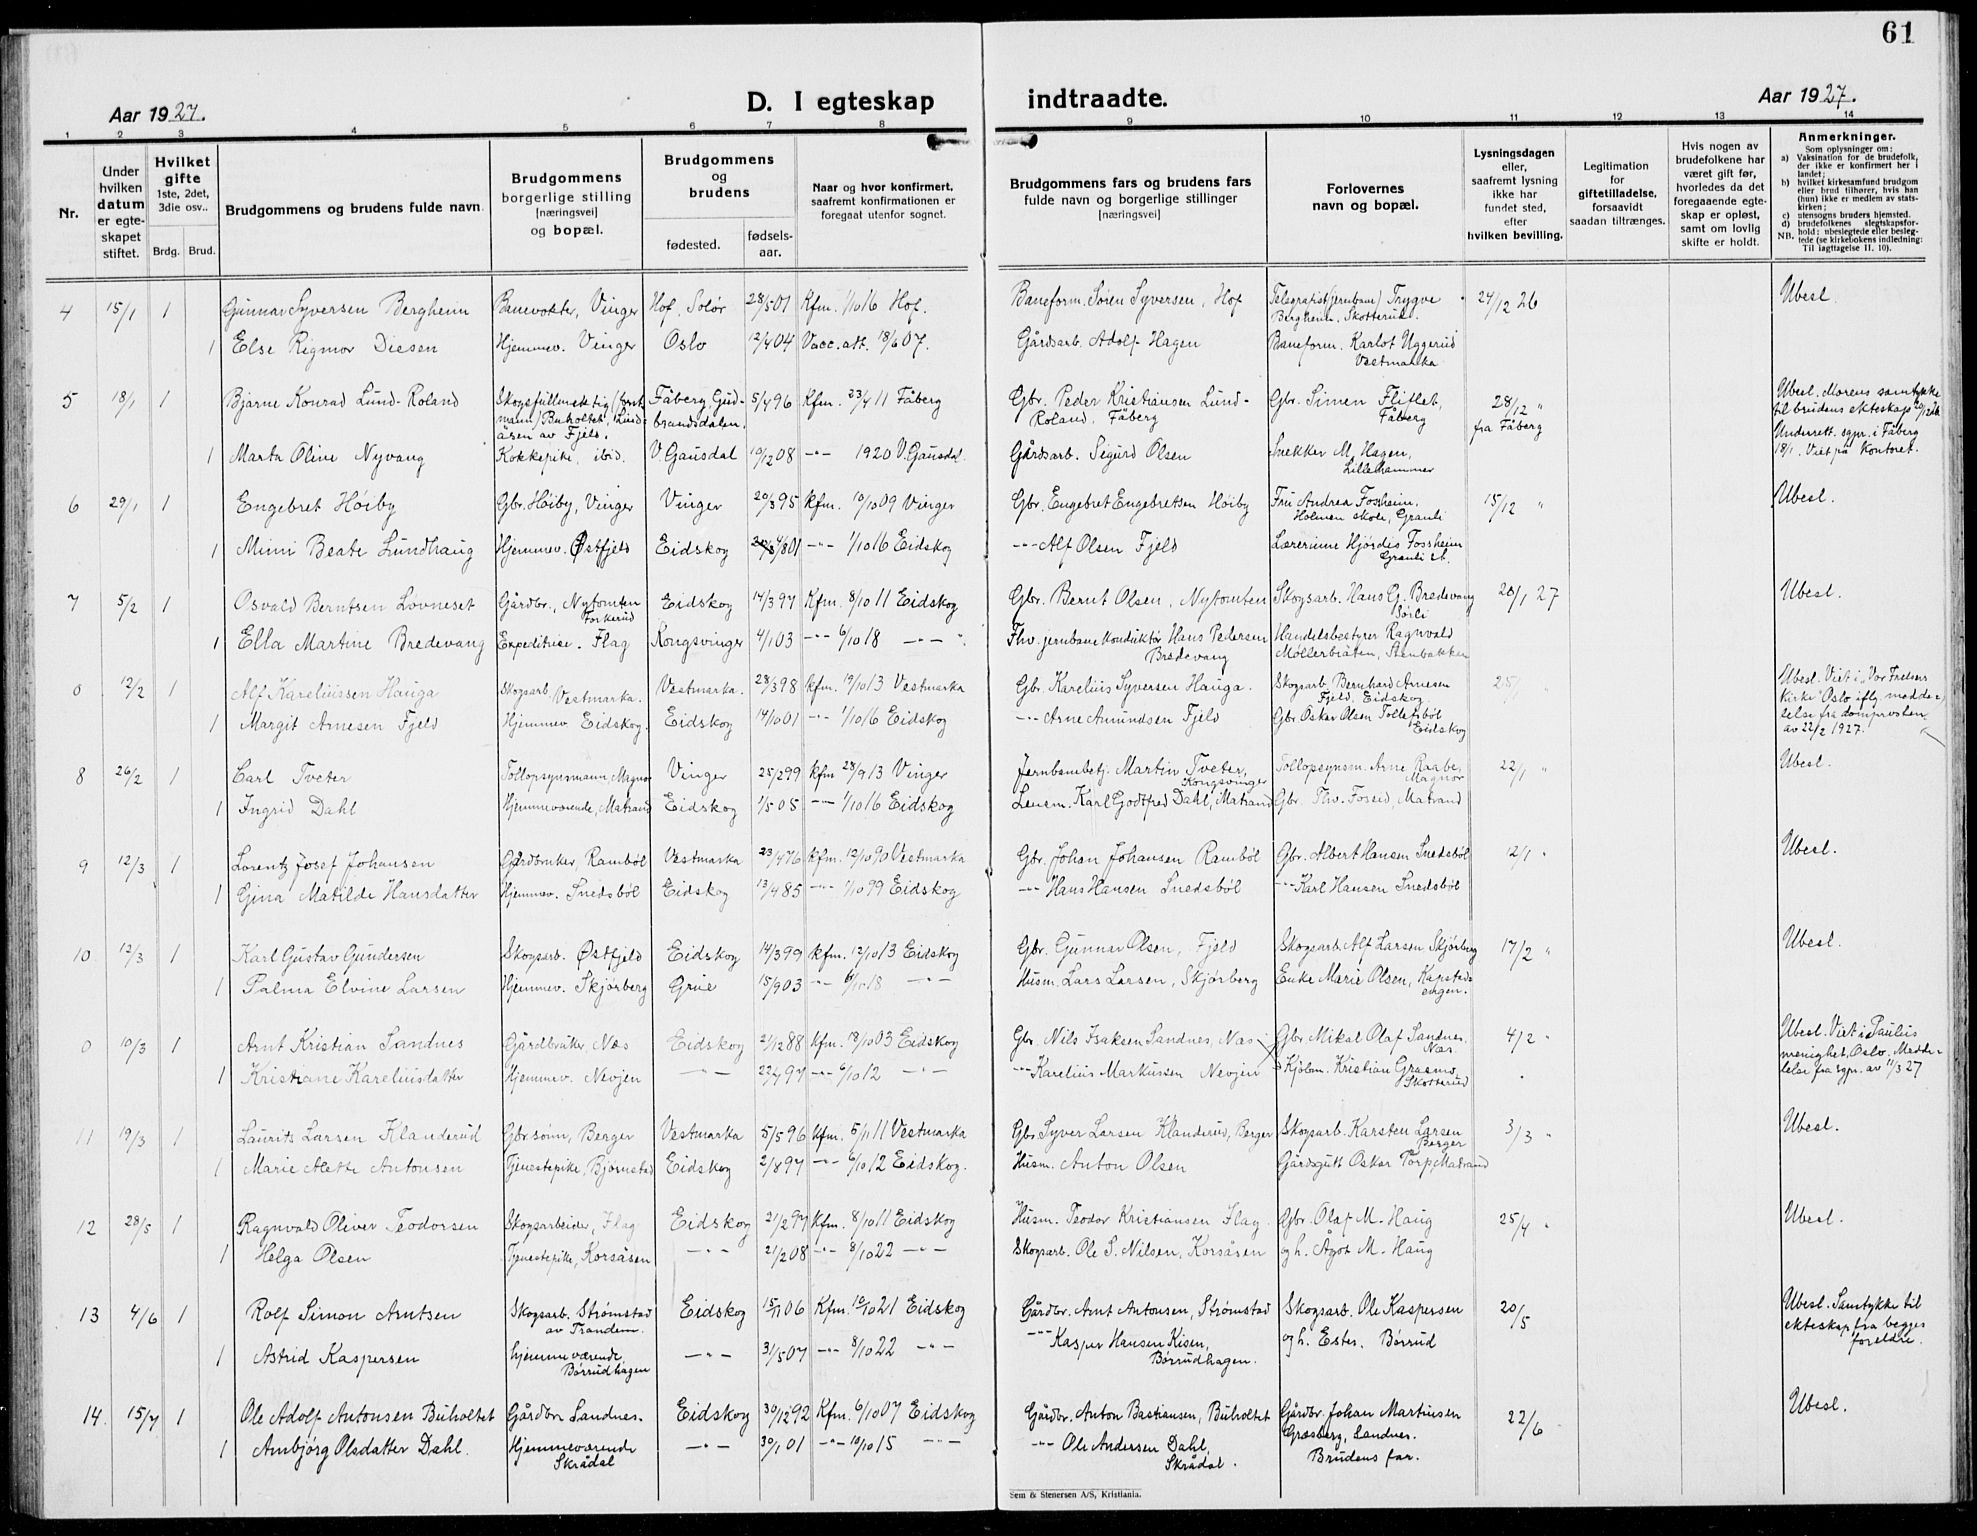 61
Aar 1927.
D. I egteskap indtraadte.
Aar 1927.
1 2 3 4 5 6 7 8 9 10 11 12 13 14
Nr.
Under hvilken datum er egteskapet stiftet.
Hvilket gifte 1ste, 2det, 3die osv.. Brdg. Brud.
Brudgommens og brudens fulde navn.
Brudgommens borgerlige stilling [næringsvei] og bopæl.
Brudgommens og brudens fødested. fødselsaar.
Naar og hvor konfirmert, saafremt konfirmationen er foregaat utenfor sognet.
Brudgommens fars og brudens fars fulde navn og borgerlige stillinger [næringsvei]
Forlovernes navn og bopæl.
Lysningsdagen eller, saafremt lysning ikke har fundet sted, efter hvilken bevilling.
Legitimation for giftetilladelse, forsaavidt saadan tiltrænges.
Hvis nogen av brudefolkene har været gift før, hvorledes da det foregaaende egteskap er opløst, samt om lovlig skifte er holdt.
Anmerkninger.
Som oplysninger om:
a) Vaksination for de brudefolk, der ikke er konfirmert her i landet;
b) hvilket kirkesamfund brudgom eller brud tilhører, hvis han (hun) ikke er medlem av statskirken;
c) utensogns bruders hjemsted.
d) brudefolkenes slegtskapsforhold: ubeslegtede eller beslegtede (se kirkebokens indledning: Til iagttagelse II. 10).
NB.
4 15/1 1 Gunnar Syversen Bergheim Banevokter, Vinger Hof, Solør 28/5 01 Kfm. 1/10 16 Hof. Baneform. Søren Syversen, Hof Telegrafist (jernbane) Trygve Bergheim, Skotterud. 24/12 26 Ubesl.
1 Else Rigmor Diesen Hjemmev. Vinger Oslo 12/4 04 Vacc. att. 18/6 07. Gårdsarb. Adolf Hagen Baneform. Karlot Uggerud Vestmarka
5 18/1 1 Bjarne Konrad Lund-Roland Skogsfullmektig Buholtet, Lindåsen av Fjeld. Fåberg, Gudbrandsdalen. 5/4 96 Kfm. 23/4 11 Fåberg Gbr. Peder Kristiansen Lund-Roland, Fåberg Gbr. Simen Flitlet, Fåberg 28/12 " fra Fåberg Ubesl. Morens samtykke til brudens ekteskap 20/12 26 Underrett. sgpr. i Fåberg 18/1. Viet på kontoret.
1 Marta Oline Nyvang Kokkepike, ibid. V. Gausdal 19/12 08 -"- 1920 V. Gausdal. Gårdsarb. Sigurd Olsen Snekker M. Hagen, Lillehammer
6 29/1 1 Engebret Høiby Gbr. Høiby, Vinger Vinger 20/3 95 kfm. 10/10 09 Vinger Gbr. Engebret Engebretsen Høiby Fru Andrea Fossheim, Holmen skole, Granli 15/12 " Ubesl.
1 Mimi Beate Lundhaug Hjemmev. Østfjeld Eidskog 4/8 01 -"- 1/10 16 Eidskog -"- Alf Olsen Fjeld Lærerinne Hjørdis Fossheim Granli st.
7 5/2 1 Osvald Berntsen Lovneset Gårdbr., Nytomten Eidskog 14/3 97 Kfm. 8/10 11 Eidskog Gbr. Bernt Olsen, Nytomten Skogsarb. Hans G. Bredevang Sørli 20/1 27 Ubesl.
1 Ella Martine Bredevang Expeditrise. Flag Kongsvinger 4/1 03 -"- 6/10 18 -"- Fhv. jernbanekonduktør Hans Pedersen Bredevang Handelsbestyrer Ragnvald Møllerbråten, Stenbakken
0 12/2 1 Alf Kareliussen Hauga Skogsarb. Vestmarka. Vestmarka. 28/3 98 kfm. 19/10 13 Vestmarka Gbr. Karelius Syversen Hauga. Skogsarb. Bernhard Arnesen Fjeld, Eidskog 25/1 " Ubesl. Viet i "Vor Frelsers Kirke" Oslo iflg. meddelelse fra domprosten av 22/2 1927.
1 Margit Arnesen Fjeld Hjemmev. Eidskog. Eidskog 14/10 01 -"- 1/10 16 Eidskog -"- Arne Amundsen Fjeld Gbr. Oskar Olsen Tollefsbøl Eidskog
8 26/2 1 Carl Tveter Tollopsynsmann, Magnor Vinger 25/2 99 kfm 28/9 13 Vinger Jernbanebetj. Martin Tveter, Kongsvinger Tollopsynsm. Arne Raabe, Magnor 22/1 " Ubesl.
1 Ingrid Dahl Hjemmeværende, Matrand Eidskog 1/5 05 -"- 1/10 16 Eidskog Lensm. Karl Godtfred Dahl, Matrand Gbr. Thv. Fosseid, Matrand
9 12/3 1 Lorentz Josef Johansen Gårdbruker, Rambøl Vestmarka 23/4 76 kfm. 12/10 90 Vestmarka Gbr. Johan Johansen Rambøl Gbr. Albert Hansen Snedsbøl 12/1 " Ubesl.
1 Gina Matilde Hansdatter Hjemmev. Snedsbøl Eidskog 13/4 85 -"- 1/10 99 Eidskog -"- Hans Hansen Snedsbøl -"- Karl Hansen Snedsbøl
10 12/3 1 Karl Gustav Gundersen Skogsarb. Østfjeld Eidskog 14/3 99 kfm. 12/10 13 Eidskog Gbr. Gunnar Olsen, Fjeld Skogsarb. Alf Larsen Skjørberg 17/2 " Ubesl.
1 Palma Elvine Larsen Hjemmev. Skjørberg Grue 15/9 03 -"- 6/10 18 -"- Husm. Lars Larsen, Skjørberg Enke Marie Olsen, Kapstadengen.
0 10/3 1 Arnt Kristian Sandnes Gårdbruker, Næs Eidskog 21/12 88 kfm. 18/10 03 Eidskog Gbr. Nils Isaksen Sandnes, Næs Gbr. Mikal Olaf Sandnes, Næs 4/2 " Ubesl. Viet i Paulus menighet, Oslo. Meddelelse fra sgpr. av 11/3 27
1 Kristiane Kareliusdatter Hjemmev. Nevjen -"- 22/4 97 -"- 6/10 12 -"- -"- Karelius Markussen Nevjen Kjøbm. Kristian Grasmo Skotterud
11 19/3 1 Laurits Larsen Klanderud Gbr.sønn, Berger Vestmarka 5/5 96 kfm. 5/11 11 Vestmarka Gbr. Syver Larsen Klanderud, Berger Skogsarb. Karsten Larsen Berger 3/3 " Ubesl.
1 Marie Alette Antonsen Tjenestepike, Bjørnstad Eidskog 2/8 97 -"- 6/10 12 Eidskog. Husm. Anton Olsen Gårdsgutt Oskar Torp, Matrand
12 28/5 1 Ragnvald Oliver Teodorsen Skogsarbeider, Flag Eidskog 21/2 97 Kfm. 8/10 11 Eidskog Husm. Teodor Kristiansen Flag. Gbr. Olaf M. Haug 25/4 " Ubesl.
1 Helga Olsen Tjenestepike, Korsåsen -"- 21/2 08 -"- 8/10 22 -"- Skogsarb. Ole S. Nilsen, Korsåsen og h. Agot M. Haug
13 4/6 1 Rolf Simon Arntsen Skogsarb. Strømstad av Trandem. Eidskog 15/11 06 Kfm. 10/10 21 Eidskog Gårdbr. Arnt Antonsen, Strømstad Skogsarb. Ole Kaspersen 20/5 Ubesl. Samtykke til ekteskap fra begges foreldre.
1 Astrid Kaspersen hjemmeværende Børrudhagen -"- 31/5 07 -"- 8/10 22 -"- -"- Kasper Hansen Kisen, Børrudhagen. og h. Ester. Børrud
14. 15/7 1 Ole Adolf Antonsen Buholtet Gårdbr Sandnes. Eidskog 30/12 92 Kfm. 6/10 07 Eidskog Gårdbr. Anton Bastiansen, Buholtet Gårdbr. Johan Martinsen Græsberg, Sandnes. 22/6 Ubesl.
1 Ambjørg Olsdatter Dahl. Hjemmeværende Skrådal -"- 30/1 01 -"- 10/10 15 -"- -"- Ole Andersen Dahl, Skrådal. Brudens far.
Sem & Stenersen A/S, Kristiania.